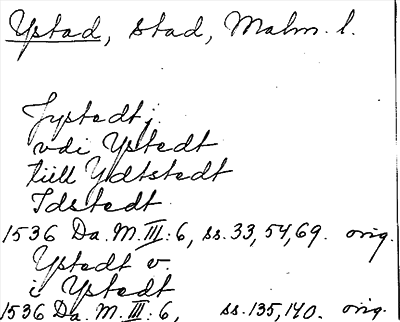 Ystad, stad, Malm. l.
Jystedt j.
vdi Ystedt
till Ydtstedt
Idstedt
1536 Da. M. III: 6, ss. 33, 54, 69. orig.
Ystedt v.
i Ystedt
1536 Da. M. III: 6, ss. 135, 140. orig.